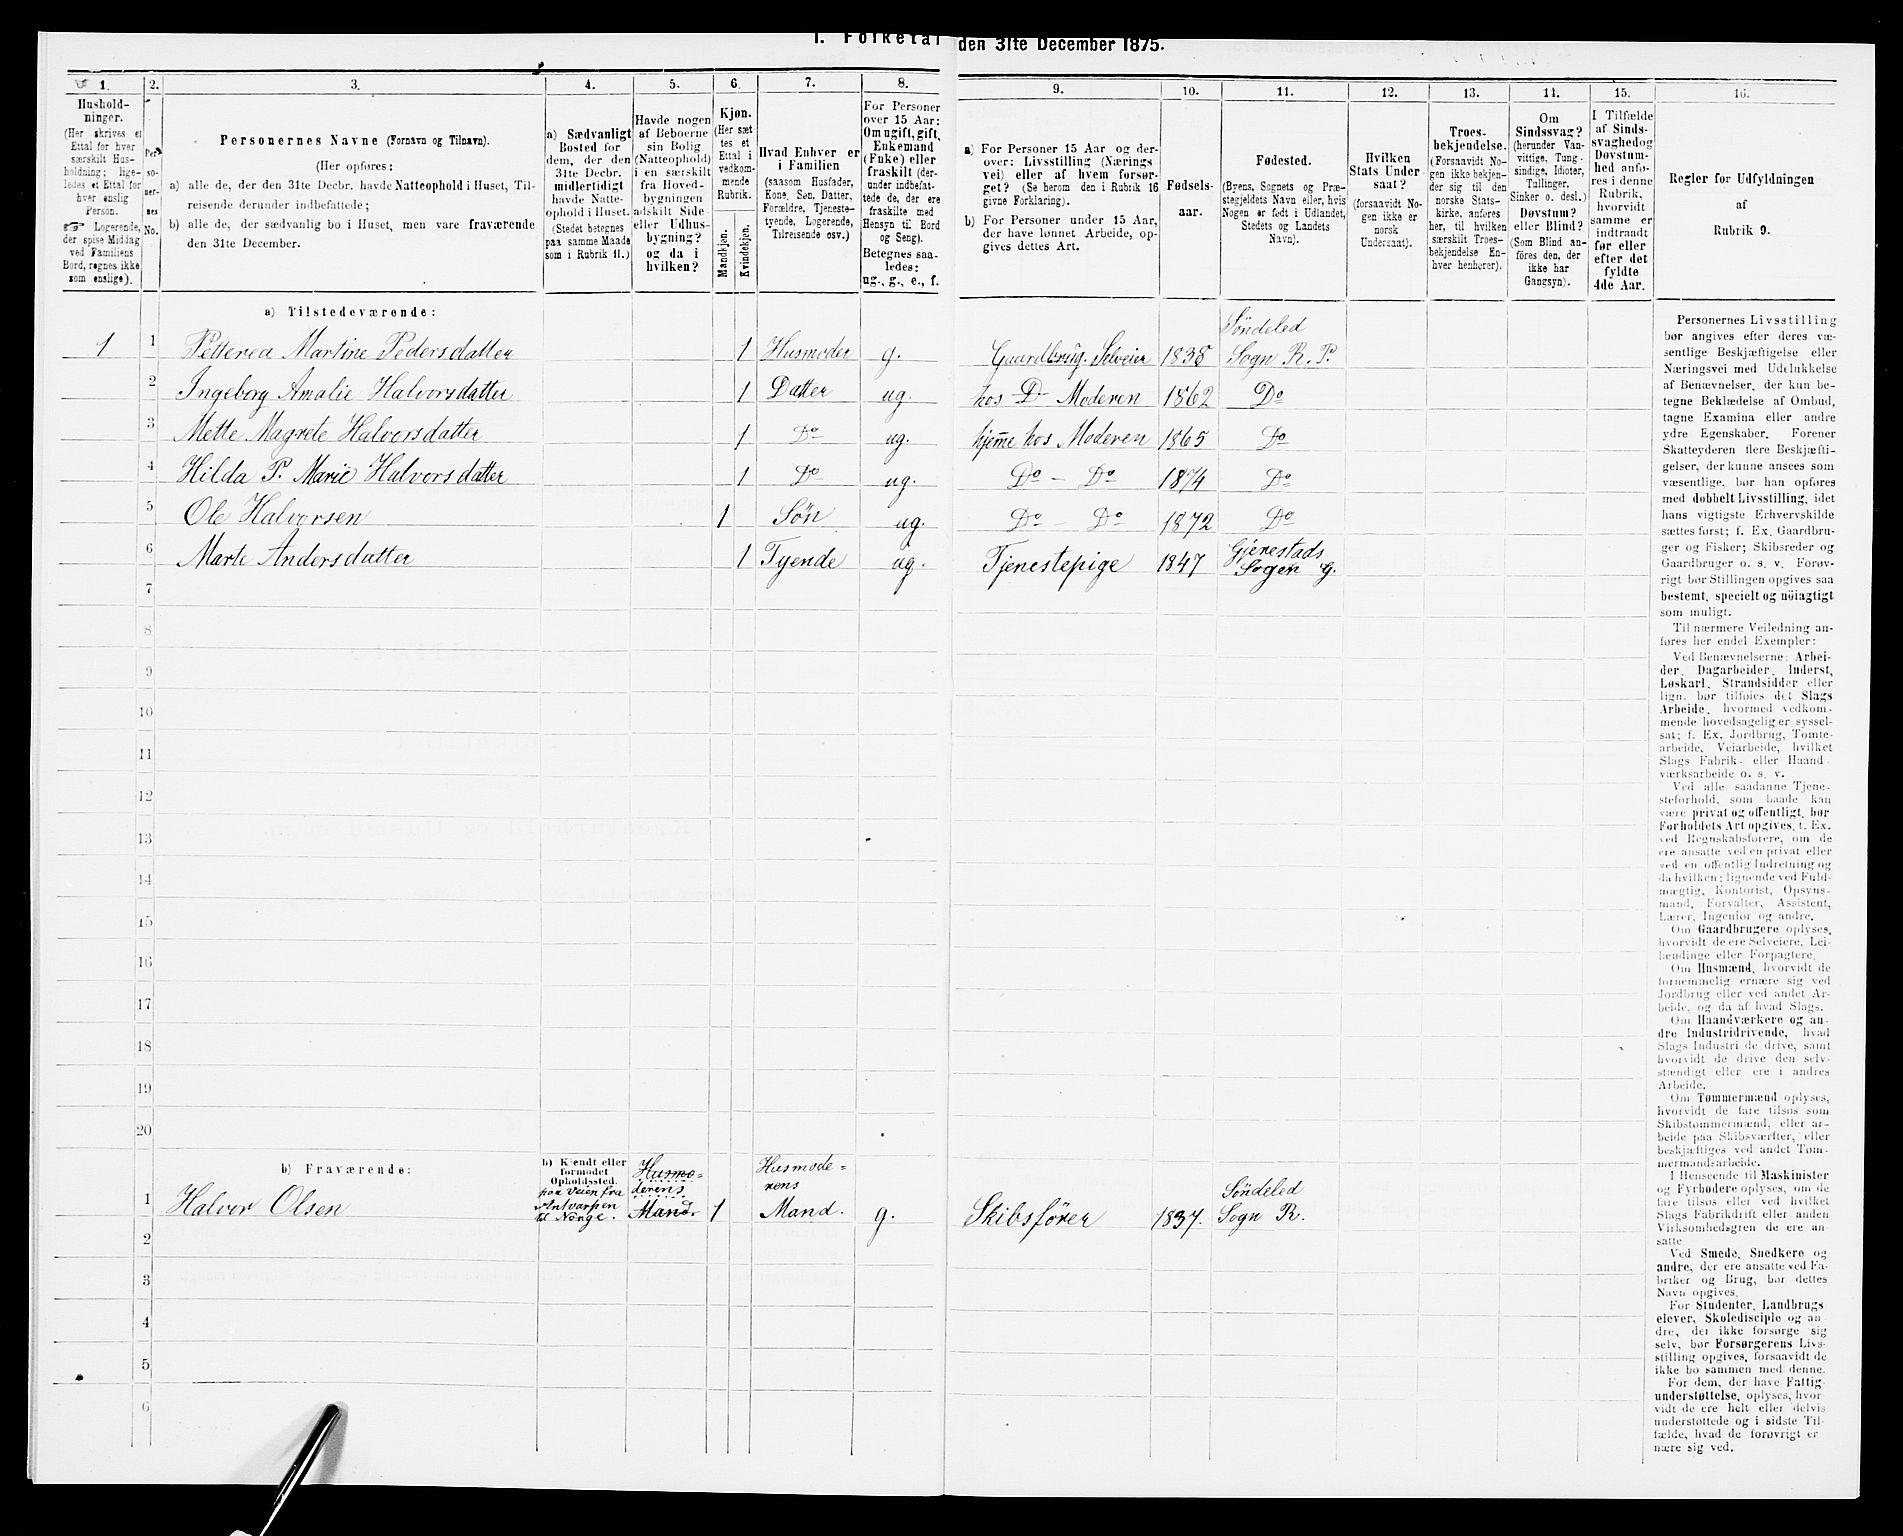 I. Folketal den 31te December 1875.
1. 2. 3. 4. 5. 6. 7. 8. 9. 10. 11. 12. 13. 14. 15. 16.
Hushold-
ninger.
(Her skrives et
Ettal for hver
særskilt Hus-
holdning; lige-
ledes et Ettal for
hver enslig
Person.
☞ Logerende,
der spise Middag
ved Familiens
Bord, regnes ikke
som enslige).
Per-
so-
ner-
nes
No.
Personernes Navne (Fornavn og Tilnavn).
(Her opføres:
a) alle de, der den 31te Decbr. havde Natteophold i Huset, Til-
reisende derunder indbefattede;
b) alle de, der sædvanlig bo i Huset, men vare fraværende
den 31te December.
a) Sædvanligt
Bosted for
dem, der den
31te Decbr.
midlertidigt
havde Natte-
ophold i Huset.
(Stedet betegnes
paa samme Maade
som i Rubrik 11.)
Havde nogen
af Beboerne
sin Bolig
(Natteophold)
i en særskilt
fra Hoved-
bygningen
adskilt Side-
eller Udhus-
bygning?
og da i
hvilken?
Kjøn.
(Her sæt-
tes et
Ettal i
vedkom-
mende
Rubrik.
Mandkjøn.
Kvindekjøn.
Hvad Enhver er
i Familien
(saasom Husfader,
Kone, Søn, Datter,
Forældre, Tjeneste-
tyende, Logerende,
Tilreisende osv.)
For Personer
over 15 Aar:
Om ugift, gift,
Enkemand
(Enke) eller
fraskilt (der-
under indbefat-
tede de, der ere
fraskilte med
Hensyn til Bord
og Seng).
Betegnes saa-
ledes:
ug., g., e., f.
a) For Personer 15 Aar og der-
over: Livsstilling (Nærings
vei) eller af hvem forsør-
get? (Se herom den i Rubrik 16
givne Forklaring).
b) For Personer under 15 Aar,
der have lønnet Arbeide, op-
gives dettes Art.
Fødsels-
aar.
Fødested.
(Byens, Sognets og Præ-
stegjeldets Navn eller, hvis
Nogen er født i Udlandet,
Stedets og Landets
Navn).
Hvilken
Stats Under
saat?
(forsaavidt No-
gen ikke er
norsk
Undersaat).
Troes-
bekjendelse.
(Forsaavidt No-
gen ikke bekjen-
der sig til den
norske Stats-
kirke, anføres
her, til hvilken
særskilt Troes-
bekjendelse En-
hver henhører).
Om
Sindssvag?
(herunder Van-
vittige, Tung-
sindige, Idioter,
Tullinger,
Sinker o. desl.)
Døvstum?
eller Blind?
(Som Blind an-
føres den, der
ikke har
Gangsyn).
I Tilfælde
af Sinds-
svaghed og
Døvstum-
hed anfø-
res i denne
Rubrik,
hvorvidt
samme er
indtraadt
før eller
efter det
fyldte
4de Aar.
Regler for Udfyldningen
af
Rubrik 9.
a) Tilstedeværende:
1 1 Petterea Martine Pedersdatter 1 Husmoder g. Gaardbrug. Selveier 1838 Söndeled Sogn R. P.
2 Ingeborg Amalie Halvorsdatter 1 Datter ug. hos D Moderen 1862 Do
3 Mette Magrete Halvorsdatter 1 Do ug. hjemme hos Moderen 1865 Do
4 Hilda P. Marie Halvorsdatter 1 Do ug. Do - Do 1874 Do
5 Ole Halvorsen 1 Sön ug. Do - Do 1872 Do
6 Marte Andersdatter 1 Tyende ug. Tjenestepige 1847 Gjerestads Sogen G.
7
8
9
10
11
12
13
14
15
16
17
18
19
20
b) Fraværende:
b) Kjendt eller
formodet
Opholdssted.
1 Halvor Olsen paa Veien fra Antvarpen til Norge. Husmoderens Mand. 1 Husmode=rens Mand. g. Skibsförer 1837. Söndeled Sogn R.
2
3
4
5
6
Personernes Livsstilling
bør angives efter deres væ-
sentlige Beskjæftigelse eller
Næringsvei med Udelukkelse
af Benævnelser, der kun be-
tegne Beklædelse af Ombud,
tagne Examina eller andre
ydre Egenskaber. Forener
Skatteyderen flere Beskjæfti-
gelser, der kunne ansees som
væsentlige, bør han opføres
med dobbelt Livsstilling, idet
hans vigtigste Erhvervskilde
sættes først; f. Ex. Gaardbru-
ger og Fisker; Skibsreder og
Gaardbruger o. s. v. Forøv-
rigt bør Stillingen opgives saa
bestemt, specielt og nöiagtigt
som muligt.
Til nærmere Veiledning an-
føres her endel Exempler:
Ved Benævnelserne: Arbei-
der, Dagarbeider, Inderst,
Løskarl, Strandsidder eller
lign. bør tilføies det Slags
Arbeide, hvormed vedkom-
mende hovedsagelig er syssel-
sat; f. Ex. Jordbrug, Tomte-
arbeide, Veiarbeide, hvilket
Slags Fabrik- eller Haand-
værksarbeide o. s. v.
Ved alle saadanne Tjene-
steforhold, som baade kan
være privat og offentligt, bør
Forholdets Art opgives, f. Ex.
ved Regnskabsførere, om de
ere ansatte ved en privat eller
ved en offentlig Indretning og
da hvilken; lignende ved Fuld-
mægtig, Kontorist, Opsyns-
mand, Forvalter, Assistent,
Lærer, Ingeniør og andre.
Om Gaardbrugere oplyses,
hvorvidt de ere Selveiere, Lei-
lændinge eller Forpagtere.
Om Husmænd, hvorvidt de
fornemmelig ernære sig ved
Jordbrug eller ved andet Ar-
beide, og da af hvad Slags.
Om Haandværkere og an-
dre Industridrivende, hvad
Slags Industri de drive, samt
hvorvidt de drive den selv-
stændigt eller ere i andres
Arbeide.
Om Tømmermænd oplyses,
hvorvidt de fare tilsøs som
Skibstømmermænd, eller ar-
beide paa Skibsværfter, eller
beskjæftiges ved andet Tøm-
mermandsarbeide.
I Henseende til Maskinister
og Fyrbødere oplyses, om de
fare tilsøs eller ved hvilket
Slags Fabrikdrift eller anden
Virksomhedsgren de ere an-
satte
Ved Smede, Snedkere og
andre, der ere ansatte ved Fa-
briker og Brug, bør dettes
Navn opgives.
For Studenter, Landbrugs
elever, Skoledisciple og an-
dre, der ikke forsørge sig
selv, bør Forsørgerens Livs-
stilling opgives, forsaavidt de
ikke bo sammen med denne.
For dem, der have Fattig-
understøttelse, oplyses, hvor-
vidt de ere helt eller delvis
understøttede og i sidste Til-
fælde, hvad de forøvrigt er
nære sig ved.